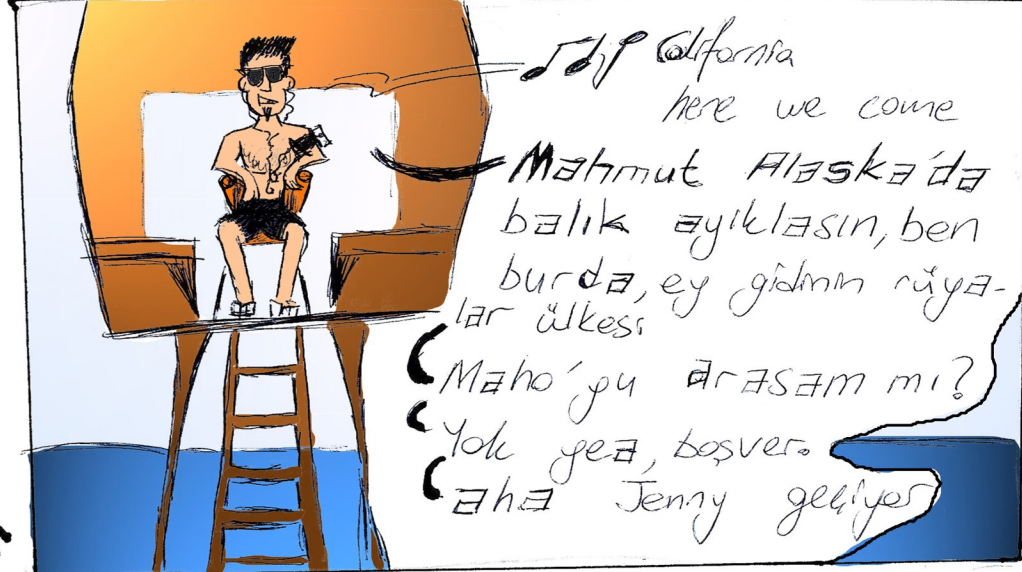 California
here we come
Mahmut Alaska'da
balık ayıklasın, ben
burda, ey gidinin rüya-
lar ülkesi
Maho'yu arasam mı?
Yok yea, boşver.
aha Jenny geçiyor